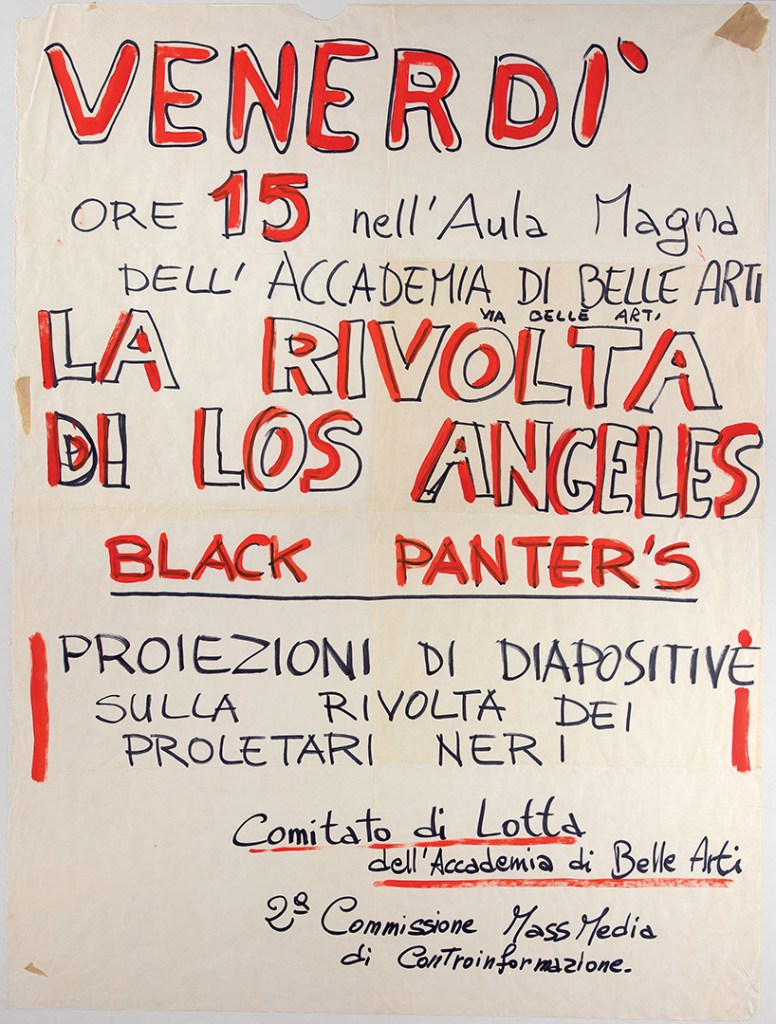 VENERDI'
ORE 15 nell'Aula Magna
DELL' ACCADEMIA DI BELLE ARTI
VIA BELLE ARTI
LA RIVOLTA
DI LOS ANGELES
BLACK PANTER'S
PROIEZIONI DI DIAPOSITIVE
SULLA RIVOLTA DEI
PROLETARI NERI
Comitato di Lotta
dell'Accademia di Belle Arti
2ª Commissione Mass Media
di Controinformazione.